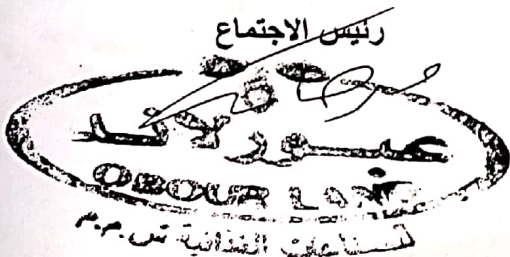 رئيس الاجتماع
عبور لاند
OBOUR LAND
للصناعات الغذائية ش.م.م